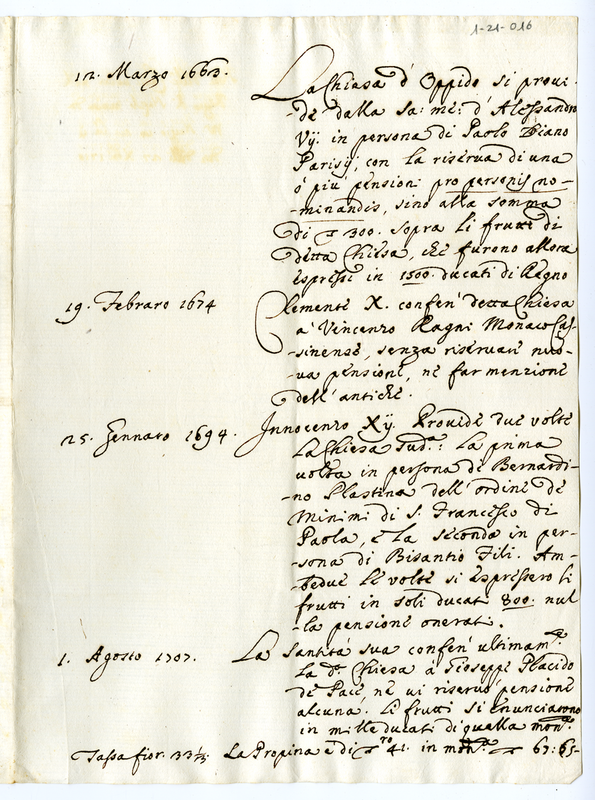 1-21-016
12. Marzo 1663. La Chiesa d'Oppido si provi-
-de dalla sa: me: d'Alessandro
Vij. in persona di Paolo Diano
Parisij, con la riserva di una
ò più pensioni pro personis no-
-minandis, sino alla somma
di 300. sopra li frutti di
detta Chiesa, che furono allora
espressi in 1500. ducati di Regno
19. Febraro 1674 Clemente X. conferì detta Chiesa
à Vincenzo Ragni Monaco Cas-
-sinense, senza riservare nuo-
-va pensione, nè far menzione
dell'antiche.
25. Gennaro 1694. Innocenzo Xij. Providde due volte
la Chiesa sud.ª: La prima
volta in persona de Bernardi-
-no Plastina dell'ordine de
Minimi di S. Francesco di
Paola, e la seconda in per-
-sona di Bisantio Fili. Am-
-bedue le volte si espressero li
frutti in soli ducati 800. nul
-la pensione onerati.
1. Agosto 1707. La Santità sua conferì ultimam.e
la d.ª Chiesa à Gioseppe Placido
de Pace, nè vi riservò pensione
alcuna. Li frutti si enunciarono
in mille ducati di quella mon.ª
Tassa fior. 33⅓. La Propina è di 41. in mon.ª 67: 65-